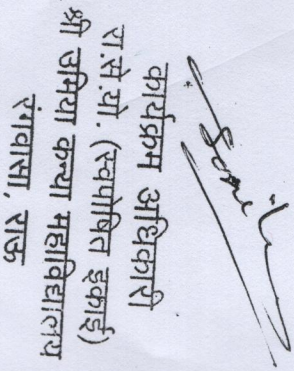 कार्यक्रम अधिकारी
रा.से.यो. (स्वपोषित इकाई)
श्री उमिया कन्या महाविद्यालय
रंगवासा, राऊ